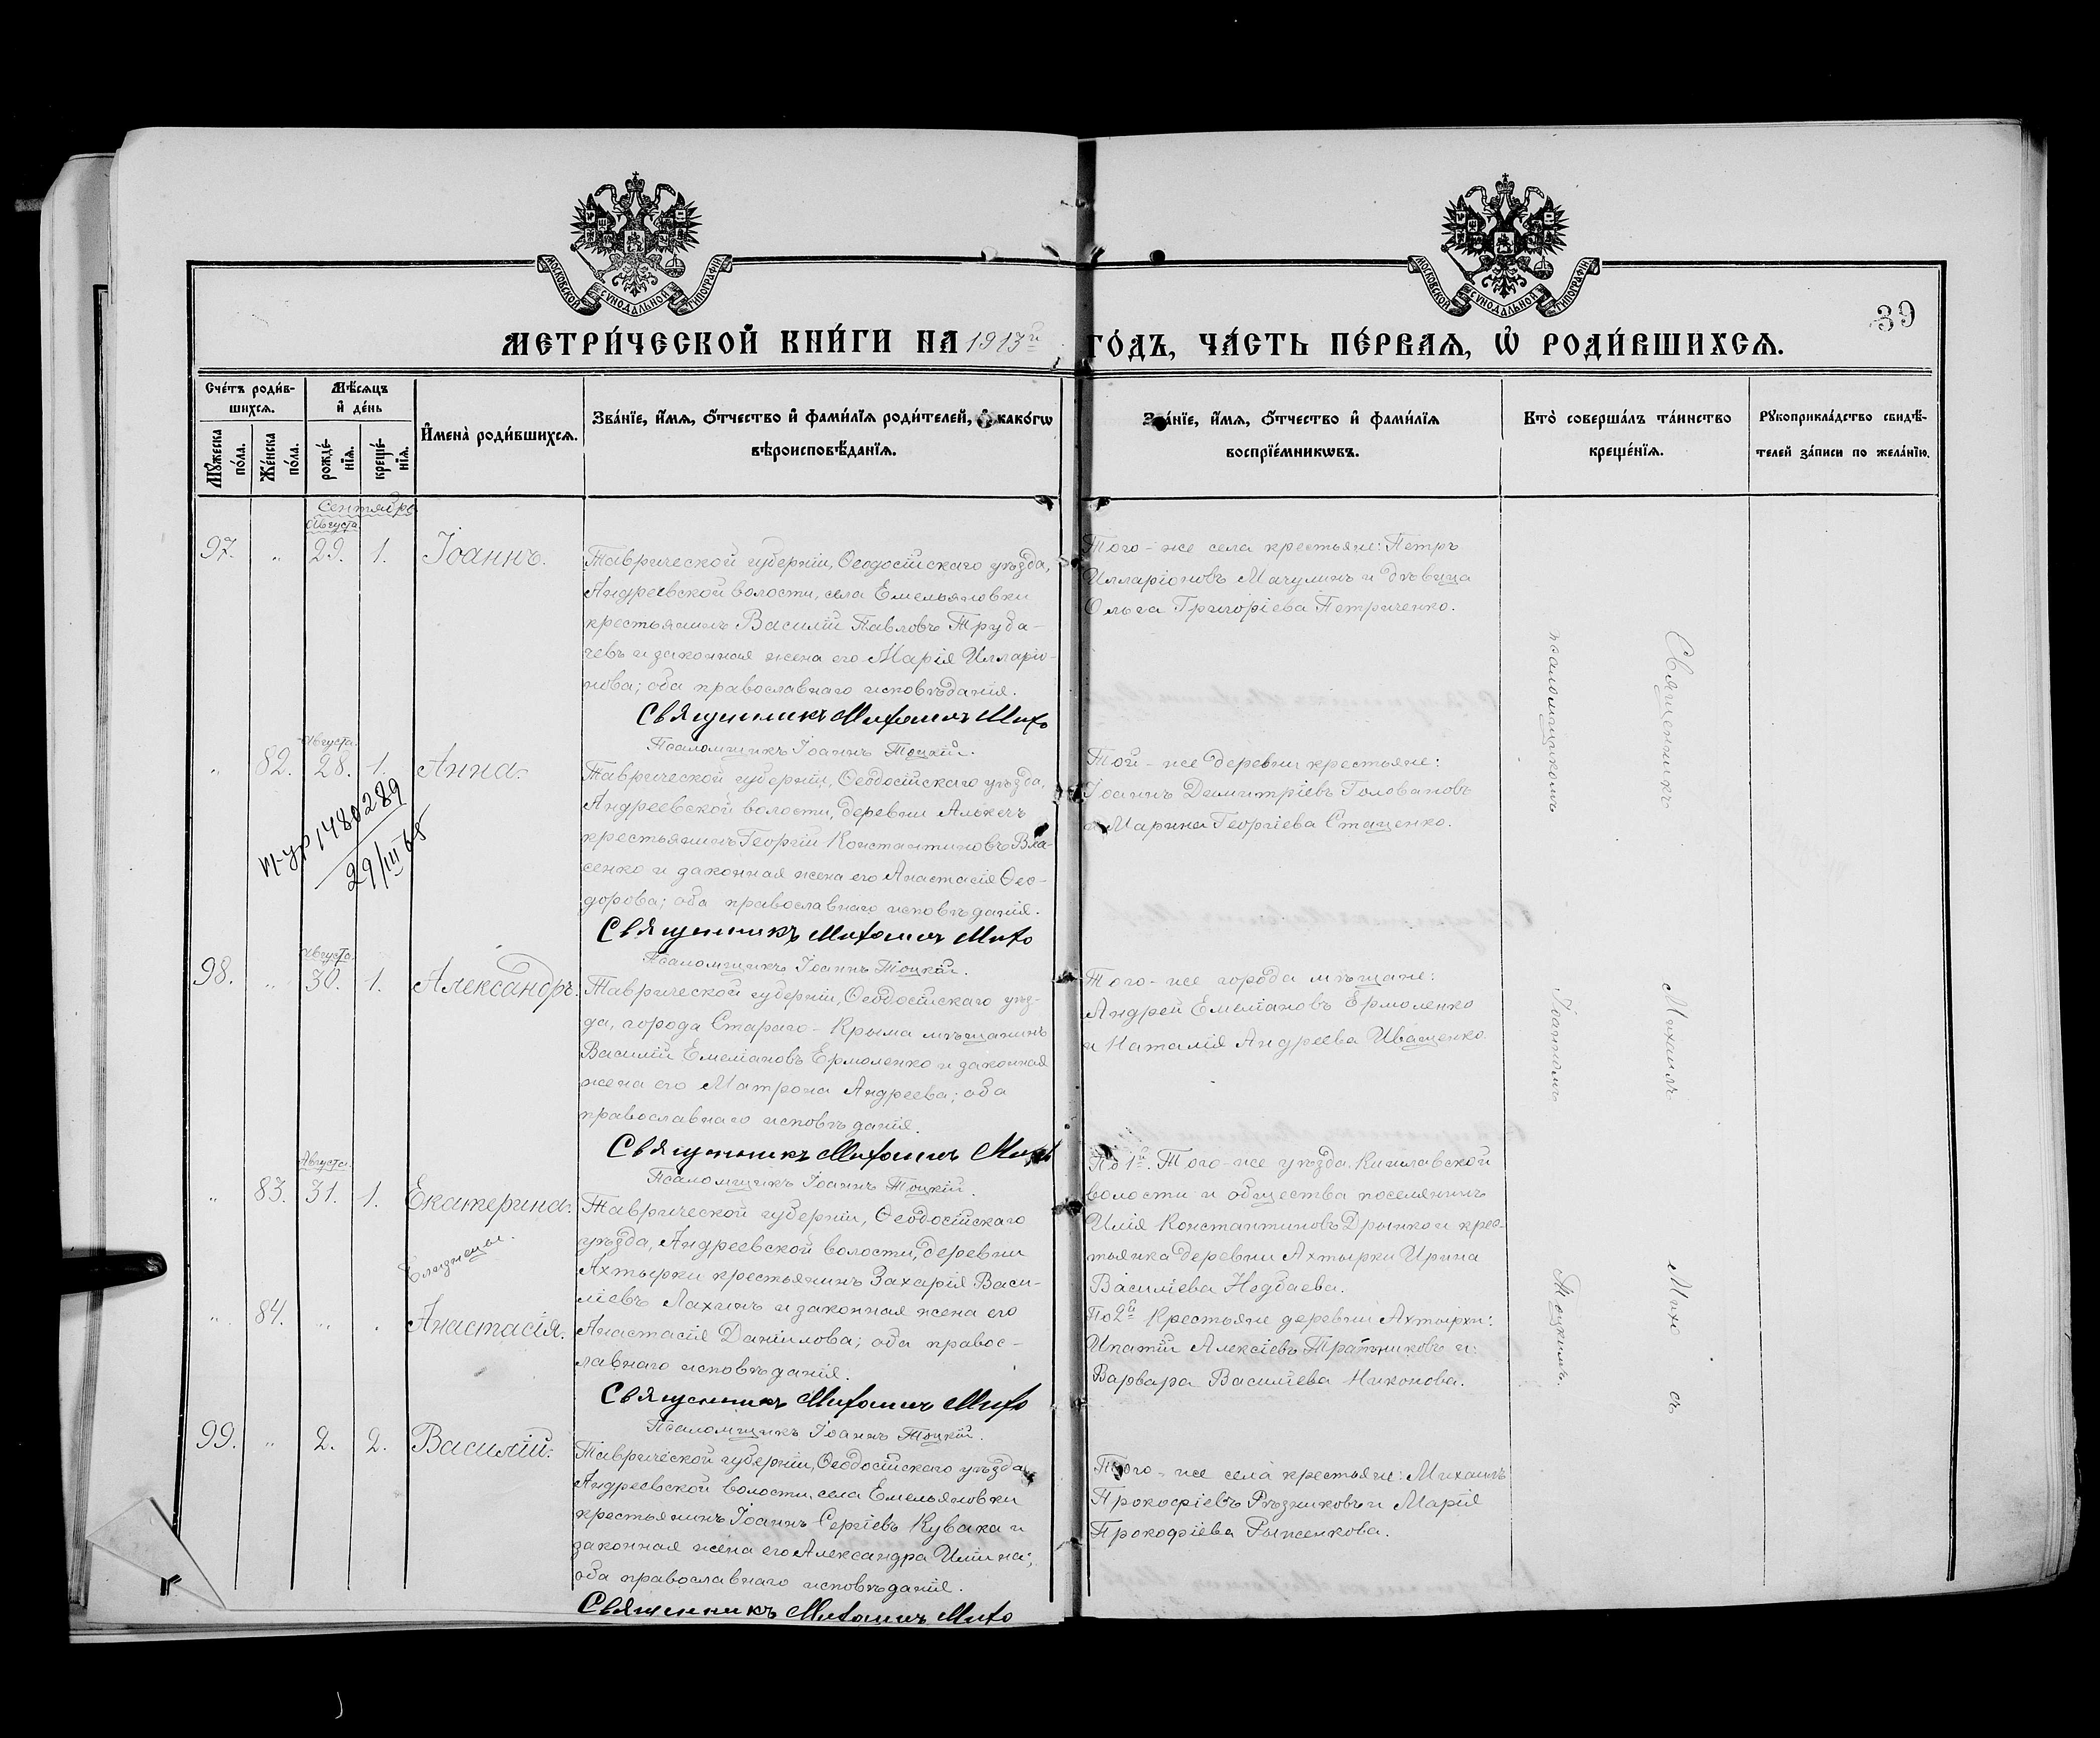 МОСКОВСКОЙ СѴНОДАЛЬНОЙ ТИПОГРАФІИ
МОСКОВСКОЙ СѴНОДАЛЬНОЙ ТИПОГРАФІИ
39
МЕТРИ́ЧЕСКОЙ КНИ́ГИ НА 1913й ГО́ДЪ, ЧА́СТЬ ПЕ́РВАѦ, Ѡ РОДИ́ВШИХСѦ.
Сче́тъ роди́в-
шихсѧ.
Мꙋ́жеска по́ла.
Же́нска по́ла.
Мѣ́сѧцъ
и҆ де́нь
рожде́-
нїѧ.
креще́-
нїѧ.
И҆мена̀ роди́вшихсѧ.
Зва́нїе, и҆́мѧ, ѻ҆́тчество и҆ фами́лїѧ роди́телей, и҆ како́гѡ
вѣроисповѣ́данїѧ.
Зва́нїе, и҆́мѧ, ѻ҆́тчество и҆ фами́лїѧ
воспрїе́мникѡвъ.
Кто̀ соверша́лъ та́инство
креще́нїѧ.
Рꙋкоприкла́дство свидѣ́-
телей за́писи по жела́нїю.
Сентябрь
Августа
97. „ 29. 1. Іоаннъ.
Таврической губерніи, Ѳеодосійскаго уѣзда,
Андреевской волости, села Емельяновки
крестьянинъ Василій Павловъ Труба-
чевъ и законная жена его Марія Илларіо-
нова; оба православнаго исповѣданія.
Священникъ Михаилъ Михо
Псаломщикъ Іоаннъ Тоцкій.
Того-же села крестьяне: Петръ
Илларіоновъ Мачулинъ и дѣвица
Ольга Григоріева Петриченко.
Августа
„ 82. 28. 1. Анна.
1480289
29/III 65
Таврической губерніи, Ѳеодосійскаго уѣзда,
Андреевской волости, деревни
крестьянинъ Георгій Константиновъ Вла-
сенко и законная жена его Анастасія Ѳео-
дорова; оба православнаго исповѣданія.
Священникъ Михаилъ Михо
Псаломщикъ Іоаннъ Тоцкій.
Той-же деревни крестьяне:
Іоаннъ Димитріевъ Головановъ
и Марина Георгіева Стаценко.
Августа
98. „ 30. 1. Александръ.
Таврической губерніи, Ѳеодосійскаго уѣз-
да, города Стараго-Крыма мѣщанинъ
Василій Емеліановъ Ермоленко и законная
жена его Матрона Андреева; оба
православнаго исповѣданія.
Священникъ Михаилъ Михо
Псаломщикъ Іоаннъ Тоцкій.
Того-же города мѣщане:
Андрей Емеліановъ Ермоленко
и Наталія Андреева Иващенко.
Августа
„ 83. 31. 1. Екатерина.
Близнецы.
„ 84. „ „ Анастасія.
Таврической губерніи, Ѳеодосійскаго
уѣзда, Андреевской волости, деревни
Ахтырки крестьянинъ Захарія Васи-
ліевъ Лахинъ и законная жена его
Анастасія Даніилова; оба правос-
лавнаго исповѣданія.
Священникъ Михаилъ Михо
Псаломщикъ Іоаннъ Тоцкій.
По 1й. Того-же уѣзда, Кишлавской
волости и общества поселянинъ
Илія Константиновъ Дрынко и крес-
тьянка деревни Ахтырки Ирина
Василіева Недбаева.
По 2й Крестьяне деревни Ахтырки:
Ипатій Алексіевъ и:
Варвара Василіева Никонова.
99. „ 2. 2. Василій.
Таврической губерніи, Ѳеодосійскаго уѣзда,
Андреевской волости, села Емельяновки
крестьянинъ Іоаннъ Сергіевъ Кувака и
законная жена его Александра Иліина;
оба православнаго исповѣданія.
Священникъ Михаилъ Михо
Того-же села крестьяне: Михаилъ
Прокофіевъ Рѣзниковъ и Марія
Прокофіева Рыженкова.
Священникъ Михаилъ Михо
съ псаломщикомъ Іоанномъ Тоцкимъ.